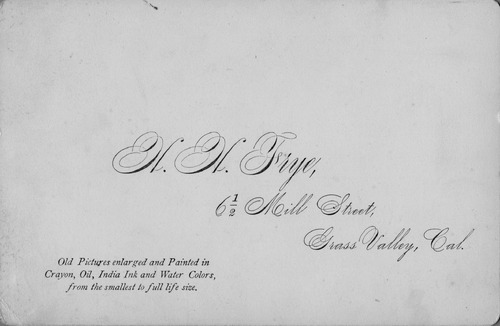 H. H. Frye,
6½ Mill Street,
Grass Valley, Cal.
Old Pictures enlarged and Painted in
Crayon, Oil, India Ink and Water Colors,
from the smallest to full life size.